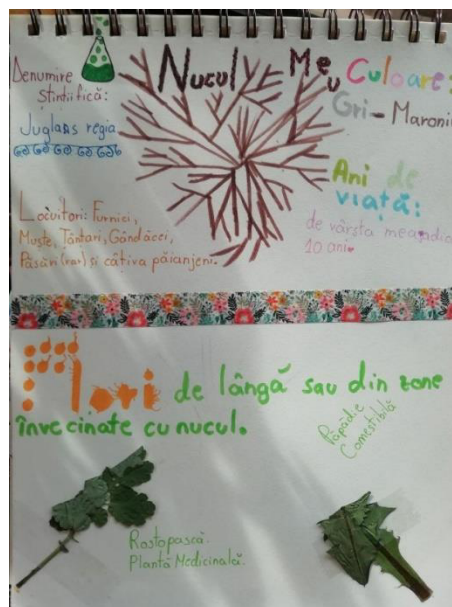 Nucul Meu
Denumire
Științifică:
Juglans regia
Culoare:
Gri-Maroniu
Ani de
viață:
de vârsta mea adică
10 ani.
Locuitori: Furnici,
Muște, Țânțari, Gândăcei,
Păsări (rar) și câțiva păianjeni.
Flori de lângă sau din zone
învecinate cu nucul.
Păpădie
Comestibilă
Rostopască.
Plantă Medicinală.